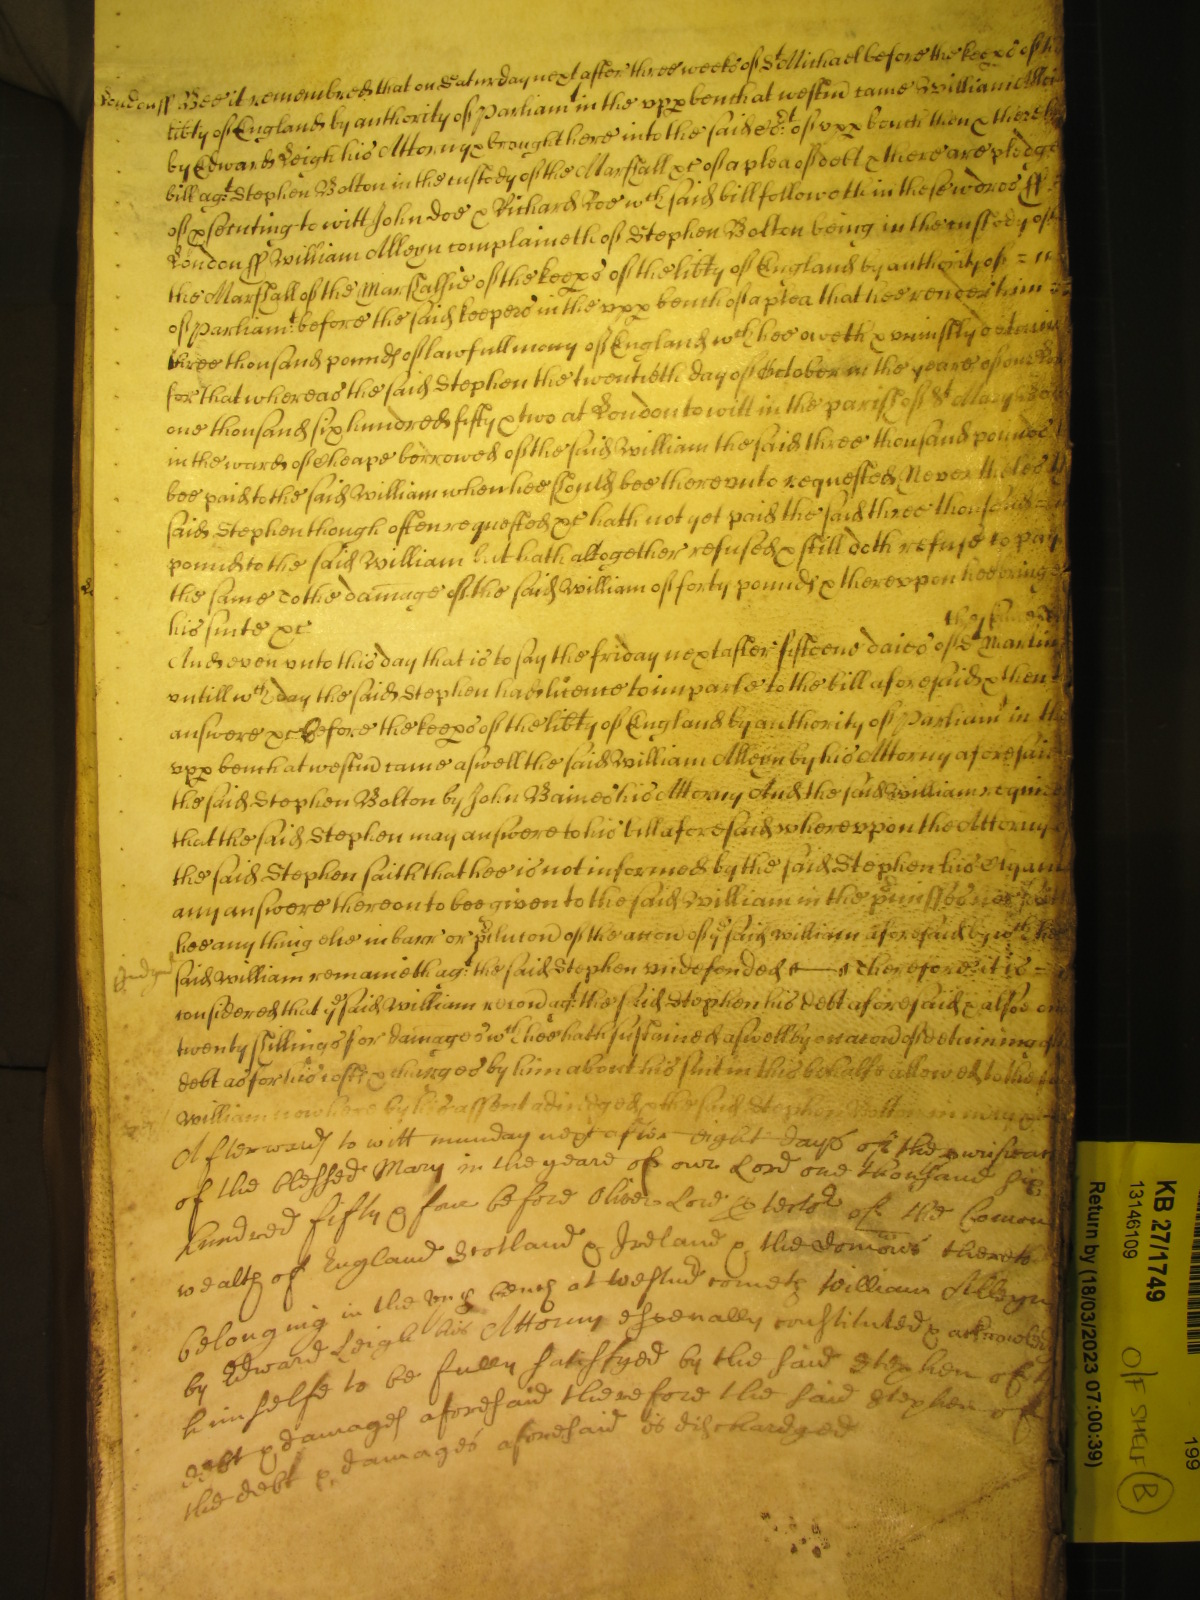 London ss Bee it remembred that on Saturday next after three weekes of St Michael before the keeps of the
libty of England by authority of Parliamt in the upp bench at westm came William Alleyn
by Edward Leigh his Attorny & brought here into the said Ct of upp bench then & there his
bill agt Stephen Bolton in the custody of the Marshall &c of a plea of debt & there are pledges
of psecuting to witt John Doe & Richard Roe wch said bill followeth in these words ss
London ss William Alleyn complaineth of Stephen Bolton being in the custody of
the Marshall of the Marshalsie of the keeps of the libty of England by authority of
of Parliamt before the said keepers in the upp bench of a plea that hee render him
three thousand pounds of lawfull mony of England wch hee oweth & uniustly detaines
for that whereas the said Stephen the twentieth day of October in the yeare of our Lord
one thousand six hundred fifty & two at London to witt in the parish of St Mary
in the ward of Cheape borrowed of the said William the said three thousand pounds to
bee paid to the said William when hee should bee thereunto requested Neverthelesse the
said Stephen though often requested &c hath not yet paid the said three thousand
pounds to the said William but hath altogether refused & still doth refuse to pay
the same To the damage of the said William of forty pounds & thereupon hee bringes
his suite &c
And even unto this day that is to say the friday next after fifteene daies of St Martin
untill wch day the said Stephen had licence to imparle to the bill aforesaid & then to
answere &c Before the keeps of the libty of England by authority of Parliamt in the
upp bench at westm came aswell the said William Alleyn by his Attorny aforesaid
the said Stephen Bolton by John Baines his Attorny And the said William requires
that the said Stephen may answere to his bill aforesaid whereupon the Attorny
the said Stephen saith that hee is not informed by the said Stephen his Clyant
any answere thereon to bee given to the said William in the pmisses nor saith
hee any thing else in barr or pclucon of the accon of ye said William aforesaid by wch the
Judgmt
said William remaineth agt the said Stephen undefended Therefore it is
considered that ye said William recov agt the said Stephen his debt aforesaid & alsoe
twenty shillings for damages wch hee hath sustained aswell by occacon of detaining
debt as for his costs & charges by him about his suit in this behalfe allowed to the said
William now here by his assent adiudged & the said Stephen Bolton in mercy &c
Afterwards to witt munday next after eight days of the purificacon
of the blessed Mary in the yeare of our Lord one thousand six
hundred fifty & four before Oliver Lord ptector of the Comon
wealth of England Scotland & Ireland & the domions thereto
belonging in the upp bench at westmr cometh William Alleyn
by Edward Leigh his Attorny especially constituted & acknowledgeth
himselfe to be fully satisfyed by the said Stephen of the
debt & damages aforesaid therefore the said Stephen of
the debt & damages aforesaid is dischardged
KB 27/1749
13146109
Return by (18/03/2023 07:00:39)
199
O/F SHELF B